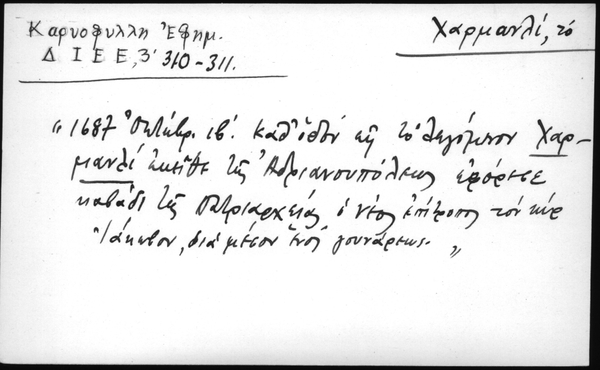 Καρυοφύλλη Ἐφημ.
Δ Ι Ε Ε, 3' 310-311.
Χαρμανλί, τό
"1687 Ὀκτώβρ. ιβ'. καθ' ὁδόν εἰς τό λεγόμενον Χαρ-
μανλί ἐκεῖθε τῆς Ἀδριανουπόλεως ἐφόρεσε
καβάδι τῆς Πατριαρχείας ὁ νέος ἐπίτροπος τόν κύρ
Ἰάκωβον, διά μέσον ἑνός γουνάρεως. "